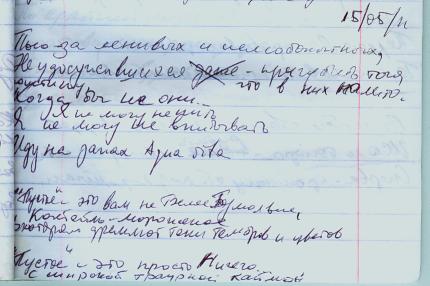 15/05/11
Пью за ленивых и нелюбопытных,
Не удосужившихся даже пригубить того
что в них налито.
Когда бы не они...
Я не могу не пить
Я не могу не выпивать
Иду на запах
"Пустое" - это вам не
Коктейль-мороженое
котором дремлют тени тембров и цветов
"Пустое" - это просто Ничего
с широкой траурной каймой